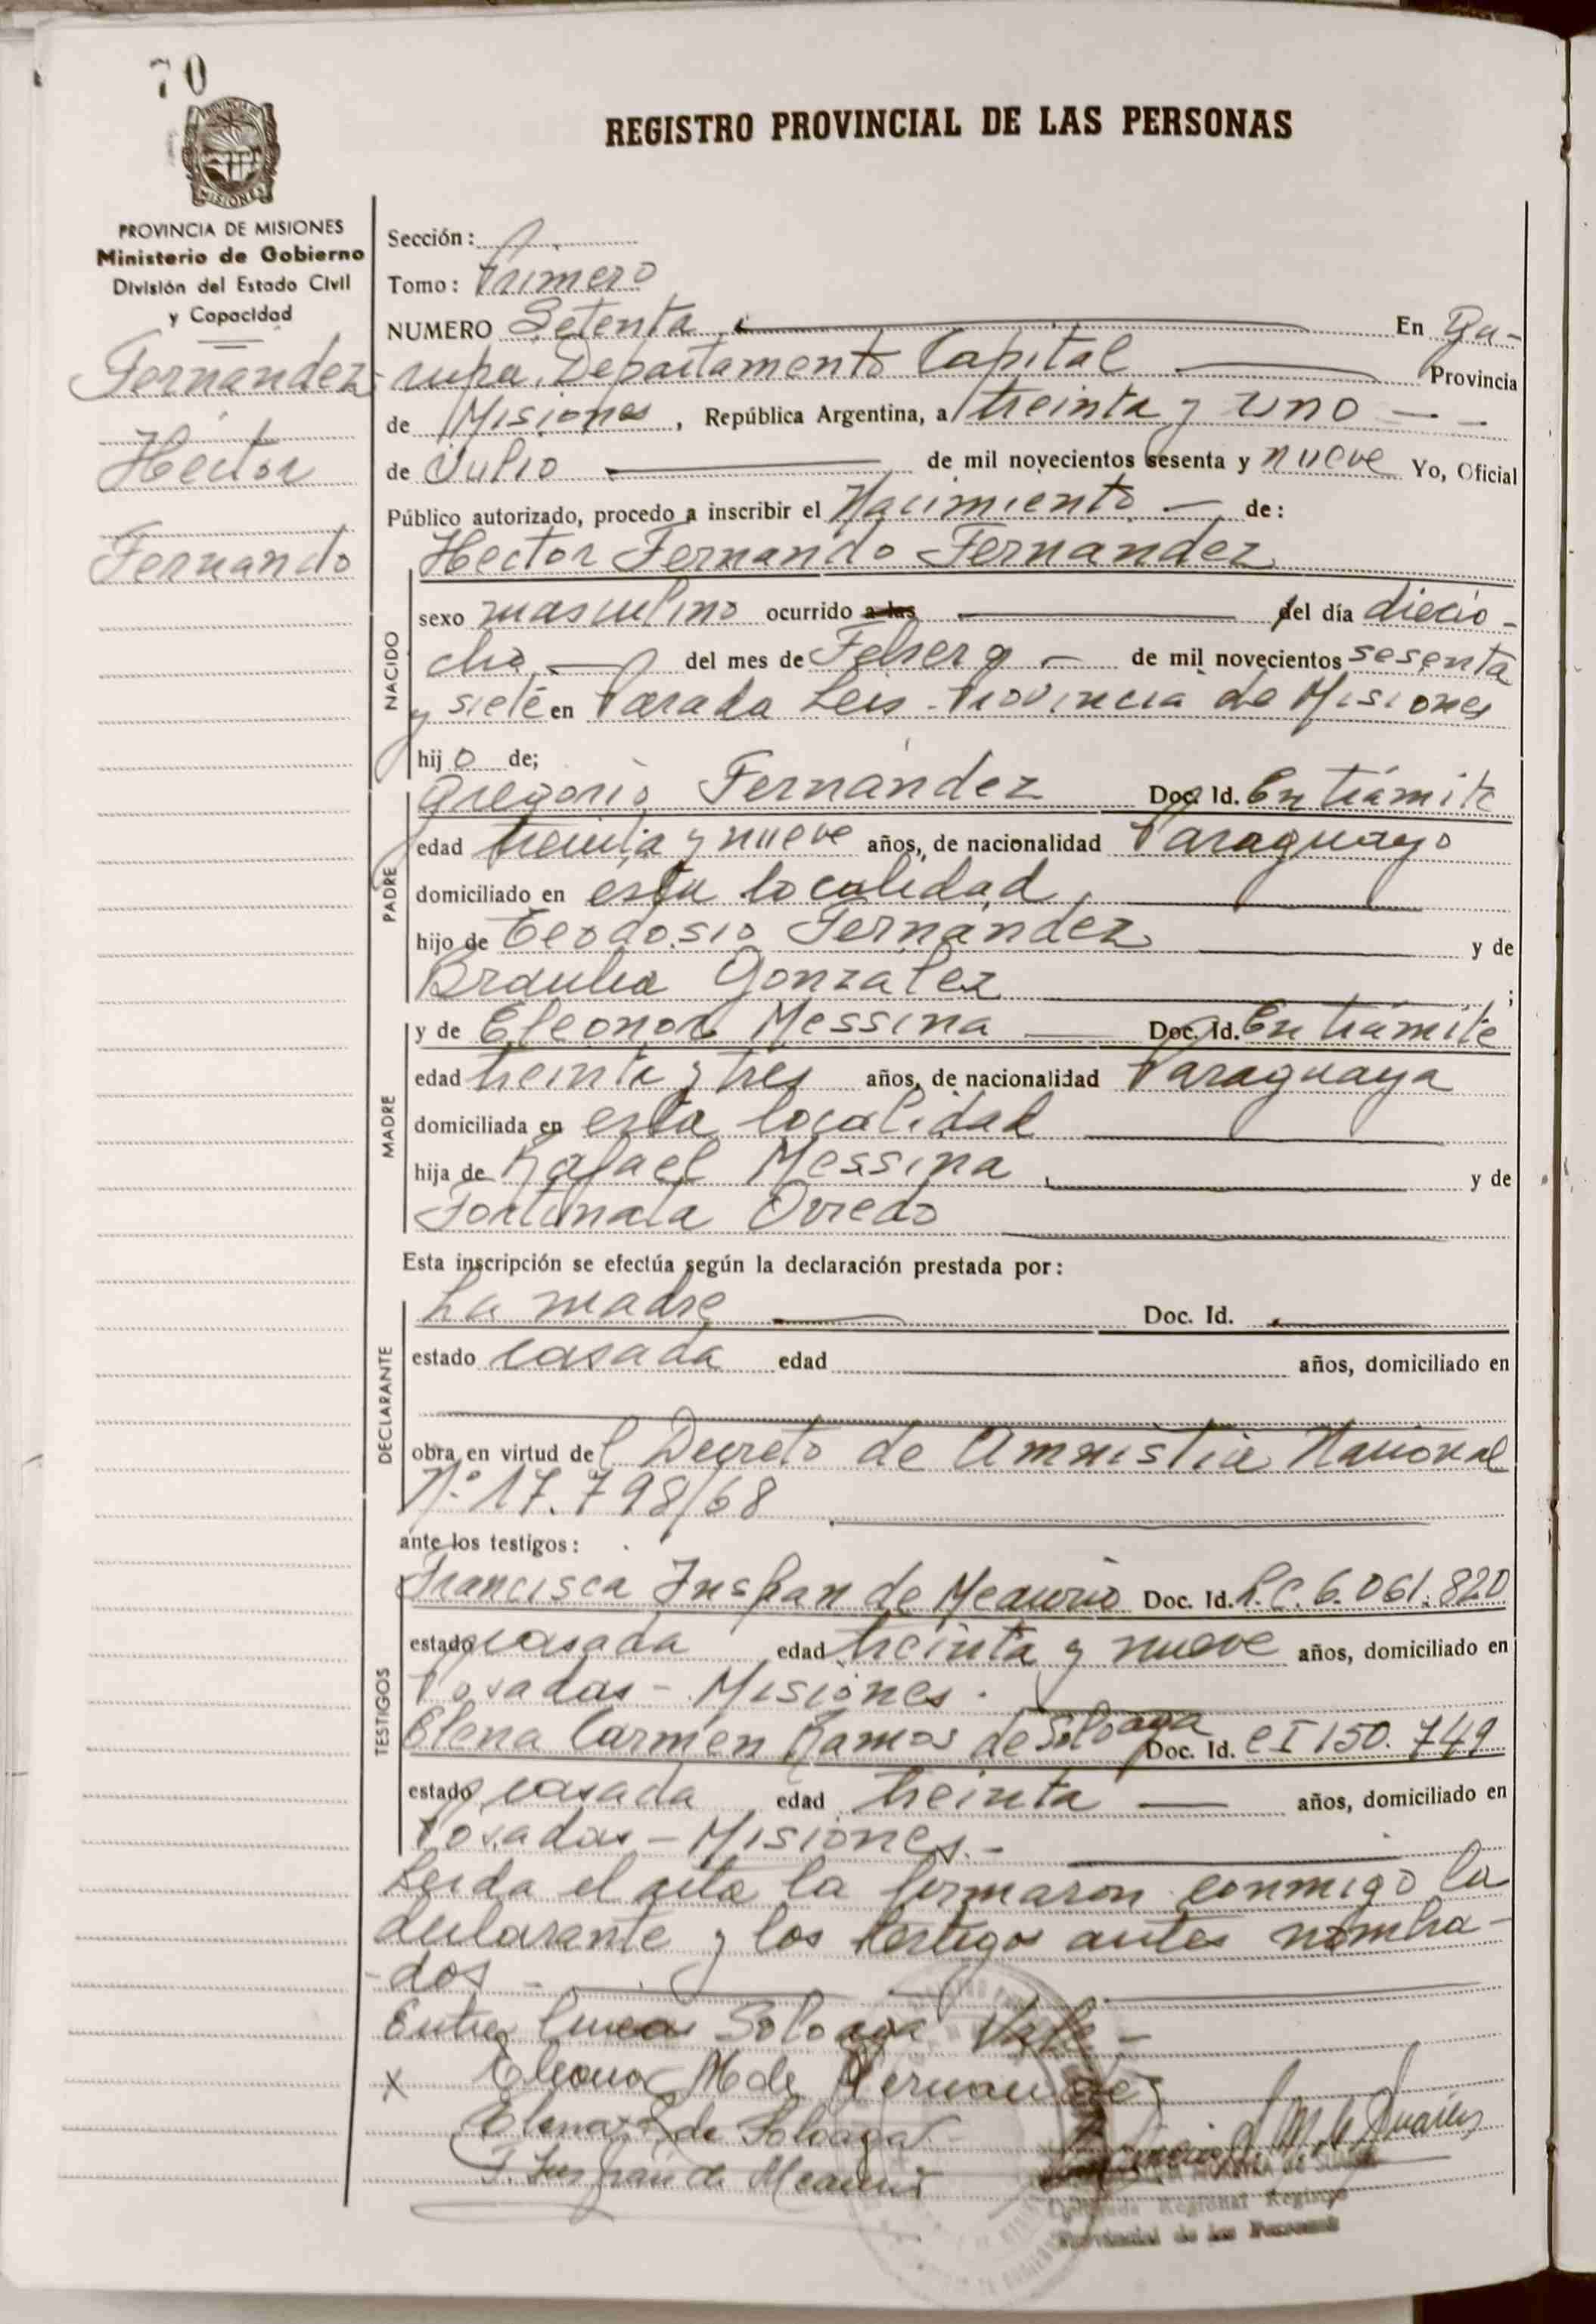 70
REGISTRO PROVINCIAL DE LAS PERSONAS
MISIONES
PROVINCIA DE MISIONES
Ministerio de Gobierno
División del Estado Civil
y Capacidad
Fernandez
Hector
Fernando
Sección:
Tomo: Primero
NUMERO Setenta En Ga-
rupa, Departamento Capital Provincia
de Misiones, República Argentina, a treinta y uno
de Julio de mil novecientos sesenta y nueve Yo, Oficial
Público autorizado, procedo a inscribir el Nacimiento de:
Hector Fernando Fernandez
NACIDO
sexo masculino ocurrido a las del día diecio-
cho del mes de Febrero de mil novecientos sesenta
y siete en Parada Leis - Provincia de Misiones
hijo de;
PADRE
Gregorio Fernández Doc. Id. En trámite
edad treinta y nueve años, de nacionalidad Paraguayo
domiciliado en esta localidad
hijo de Teodosio Fernández y de
Braulia Gonzalez ;
MADRE
y de Eleonor Messina Doc. Id. En trámite
edad treinta y tres años, de nacionalidad Paraguaya
domiciliada en esta localidad
hija de Rafael Messina y de
Fortunata Oviedo
Esta inscripción se efectúa según la declaración prestada por:
DECLARANTE
La madre Doc. Id.
estado casada edad años, domiciliado en
obra en virtud del Decreto de Amnistia Nacional
N.º 17.798/68
ante los testigos:
TESTIGOS
Francisca Insfran de Meaurio Doc. Id. L.C. 6.061.820
estado casada edad treinta y nueve años, domiciliado en
Posadas - Misiones.
Elena Carmen Ramos de Soloaga Doc. Id. C I 150.749
estado casada edad treinta años, domiciliado en
Posadas - Misiones.-
Leida el acta la firmaron conmigo la
declarante y los testigos antes nombra-
dos -
Entre lineas Soloaga Vale -
x Eleonor M de Fernandez
Elena R de Soloaga
F. Insfrán de Meaurio
Regional Registro
Provincial de las Personas